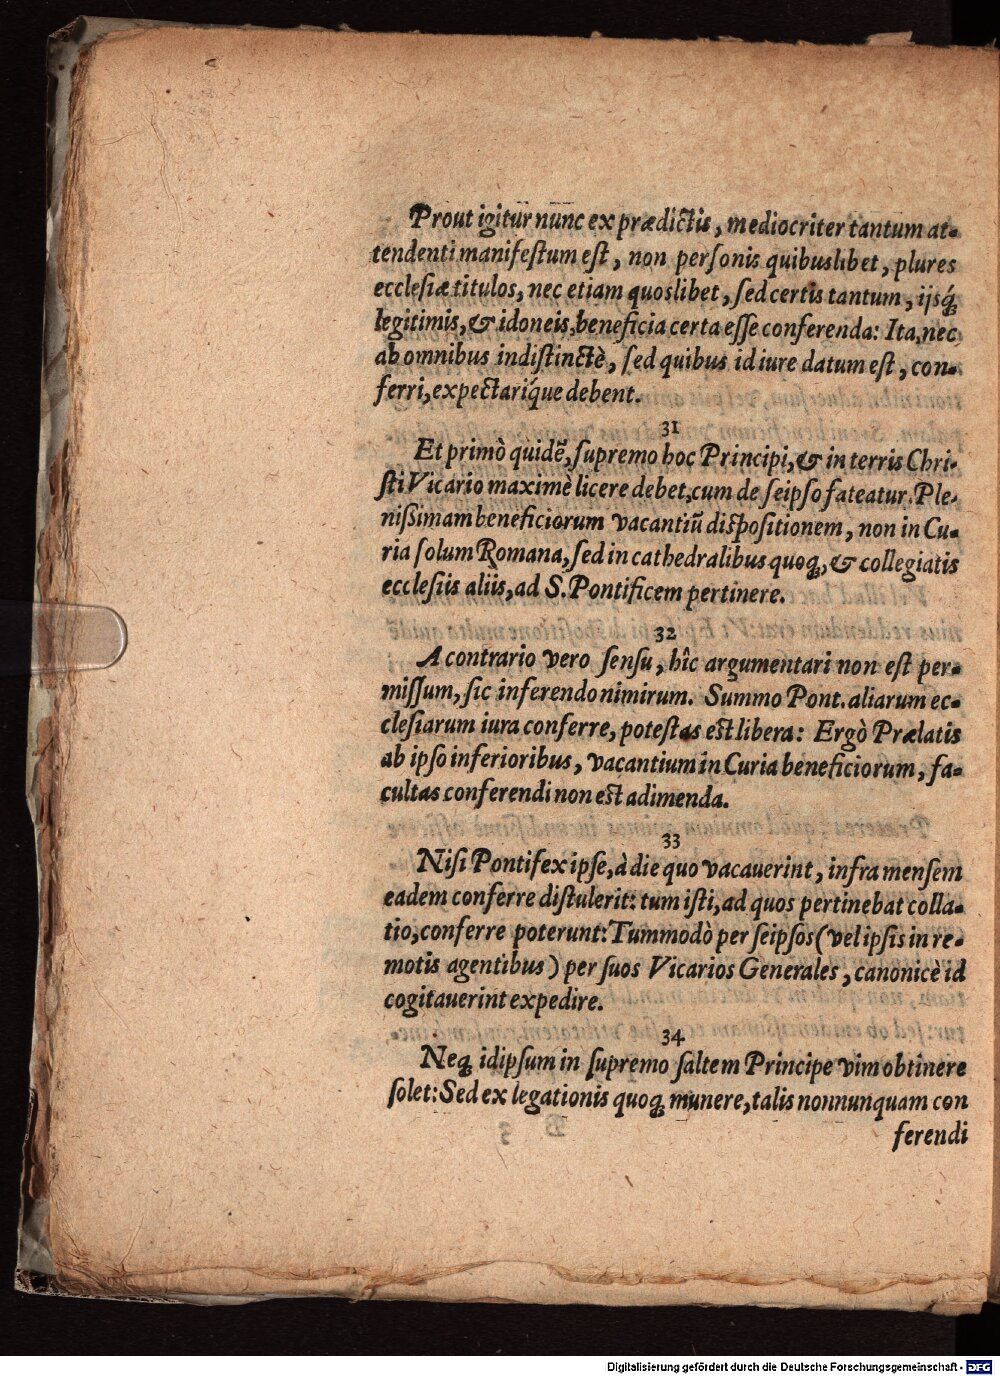 Prout igitur nunc ex prædictis, mediocriter tantum at-
tendenti manifestum est, non personis quibuslibet, plures
ecclesiæ titulos, nec etiam quoslibet, sed certis tantum, ijsq́;
legitimis, & idoneis, beneficia certa esse conferenda: Ita, nec
ab omnibus indistinctè, sed quibus id iure datum est, con-
ferri, expectariq́ue debent.
31
Et primò quidẽ, supremo hoc Principi, & in terris Chri-
sti Vicario maximè licere debet, cum de seipso fateatur. Ple-
nissimam beneficiorum vacantiũ dispositionem, non in Cu-
ria solum Romana, sed in cathedralibus quoq;, & collegiatis
ecclesiis aliis, ad S. Pontificem pertinere.
32
A contrario vero sensu, hîc argumentari non est per-
missum, sic inferendo nimirum. Summo Pont. aliarum ec-
clesiarum iura conferre, potestas est libera: Ergò Prælatis
ab ipso inferioribus, vacantium in Curia beneficiorum, fa-
cultas conferendi non est adimenda.
33
Nisi Pontifex ipse, à die quo vacauerint, infra mensem
eadem conferre distulerit: tum isti, ad quos pertinebat colla-
tio, conferre poterunt: Tummodò per seipsos (vel ipsis in re-
motis agentibus) per suos Vicarios Generales, canonicè id
cogitauerint expedire.
34
Neq; idipsum in supremo saltem Principe vim obtinere
solet: Sed ex legationis quoq; munere, talis nonnunquam con
ferendi
Digitalisierung gefördert durch die Deutsche Forschungsgemeinschaft - DFG